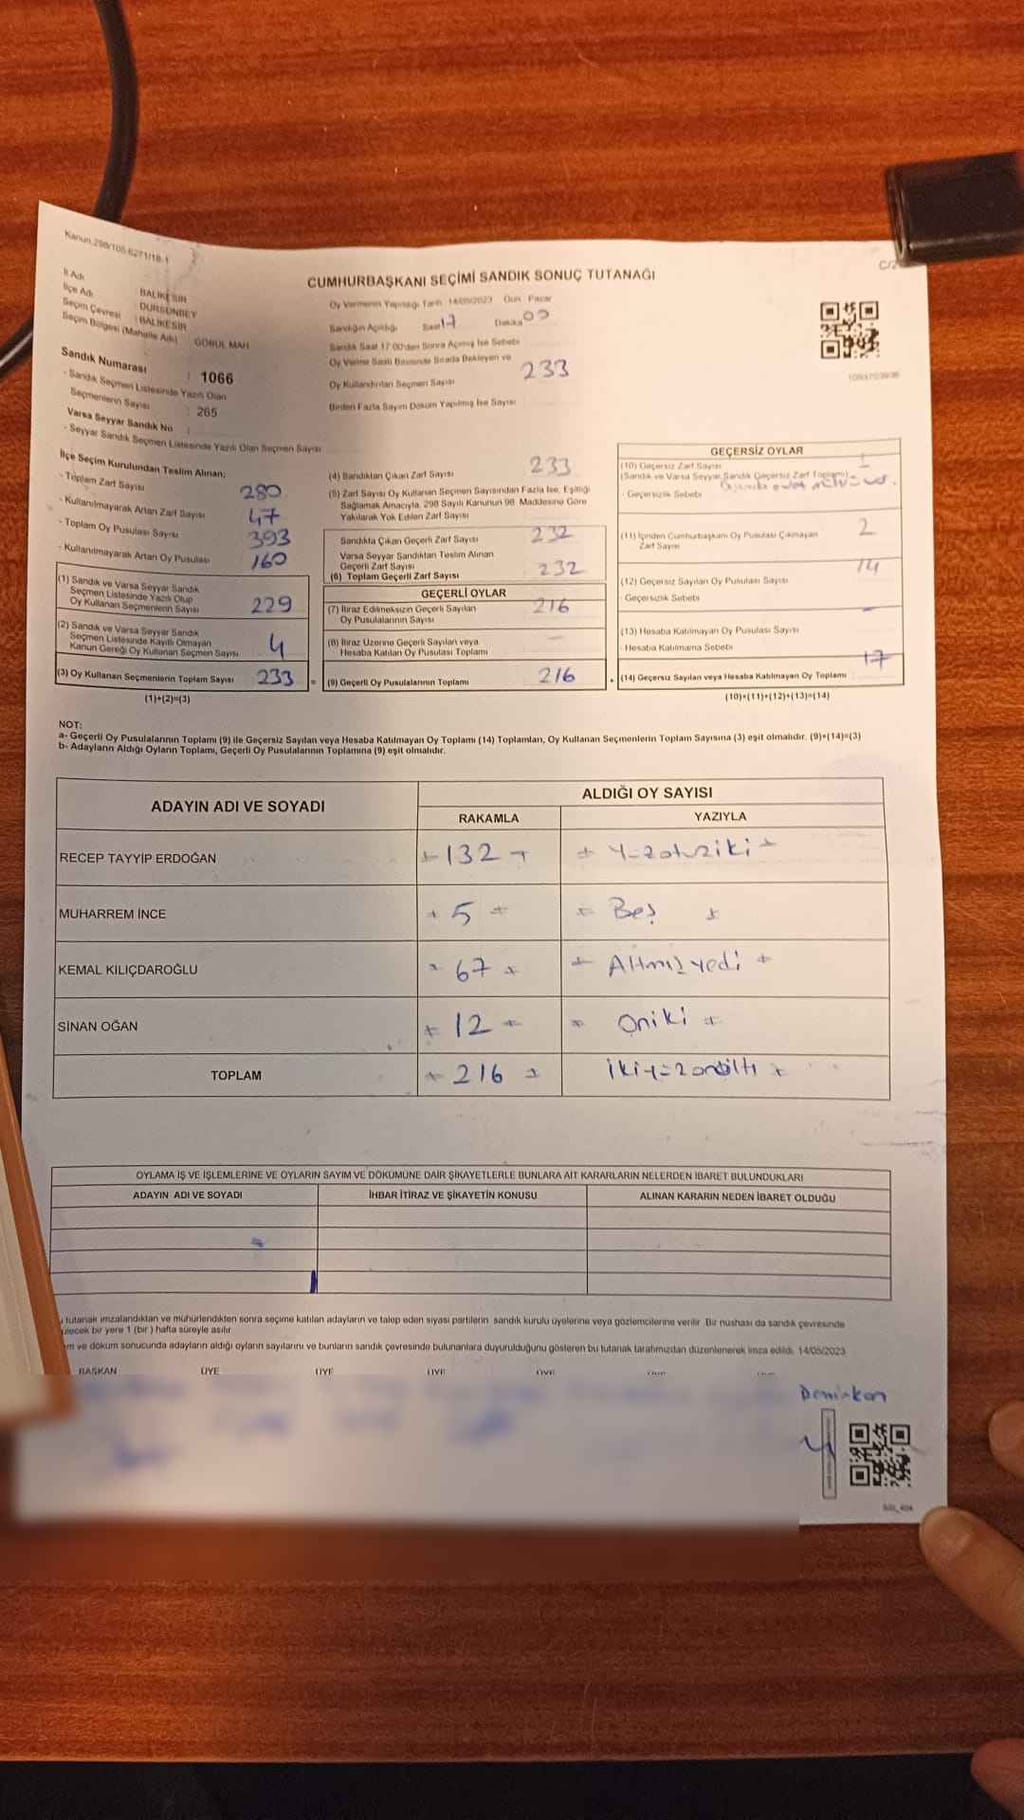 Kanun 298/105-6271/18-1
C/2
CUMHURBAŞKANI SEÇİMİ SANDIK SONUÇ TUTANAĞI
İl Adı : BALIKESİR
İlçe Adı : DURSUNBEY
Seçim Çevresi : BALIKESİR
Seçim Bölgesi (Mahalle Adı)
Sandık Numarası : 1066
- Sandık Seçmen Listesinde Yazılı Olan
Seçmenlerin Sayısı : 265
Varsa Seyyar Sandık No
- Seyyar Sandık Seçmen Listesinde Yazılı Olan Seçmen Sayısı
Oy Vermenin Yapıldığı Tarih 14/05/2023 Gün Pazar
Sandığın Açıldığı Saat 17 Dakika 00
Sandık Saat 17:00'den Sonra Açılmış İse Sebebi
Oy Verme Saati Bitiminde Sırada Bekleyen ve
Oy Kullandırılan Seçmen Sayısı 233
Birden Fazla Sayım Döküm Yapılmış İse Sayısı
İlçe Seçim Kurulundan Teslim Alınan;
- Toplam Zarf Sayısı 280
- Kullanılmayarak Artan Zarf Sayısı 47
- Toplam Oy Pusulası Sayısı 393
- Kullanılmayarak Artan Oy Pusulası 160
(1) Sandık ve Varsa Seyyar Sandık
Seçmen Listesinde Yazılı Olup
Oy Kullanan Seçmenlerin Sayısı 229
(2) Sandık ve Varsa Seyyar Sandık
Seçmen Listesinde Kayıtlı Olmayan
Kanun Gereği Oy Kullanan Seçmen Sayısı 4
(3) Oy Kullanan Seçmenlerin Toplam Sayısı 233
(1)+(2)=(3)
(4) Sandıktan Çıkan Zarf Sayısı 233
(5) Zarf Sayısı Oy Kullanan Seçmen Sayısından Fazla İse, Eşitliği
Sağlamak Amacıyla, 298 Sayılı Kanunun 98. Maddesine Göre
Yakılarak Yok Edilen Zarf Sayısı
Sandıkta Çıkan Geçerli Zarf Sayısı 232
Varsa Seyyar Sandıktan Teslim Alınan
Geçerli Zarf Sayısı
(6) Toplam Geçerli Zarf Sayısı 232
GEÇERLİ OYLAR
(7) İtiraz Edilmeksizin Geçerli Sayılan
Oy Pusulalarının Sayısı 216
(8) İtiraz Üzerine Geçerli Sayılan veya
Hesaba Katılan Oy Pusulası Toplamı —
= (9) Geçerli Oy Pusulalarının Toplamı 216
GEÇERSİZ OYLAR
(10) Geçersiz Zarf Sayısı
(Sandık ve Varsa Seyyar Sandık Geçersiz Zarf Toplamı)
- Geçersizlik Sebebi
(11) İçinden Cumhurbaşkanı Oy Pusulası Çıkmayan
Zarf Sayısı 2
(12) Geçersiz Sayılan Oy Pusulası Sayısı 14
- Geçersizlik Sebebi
(13) Hesaba Katılmayan Oy Pusulası Sayısı —
- Hesaba Katılmama Sebebi
+ (14) Geçersiz Sayılan veya Hesaba Katılmayan Oy Toplamı 17
(10)+(11)+(12)+(13)=(14)
NOT:
a- Geçerli Oy Pusulalarının Toplamı (9) ile Geçersiz Sayılan veya Hesaba Katılmayan Oy Toplamı (14) Toplamları, Oy Kullanan Seçmenlerin Toplam Sayısına (3) eşit olmalıdır. (9)+(14)=(3)
b- Adayların Aldığı Oyların Toplamı, Geçerli Oy Pusulalarının Toplamına (9) eşit olmalıdır.
ADAYIN ADI VE SOYADI
ALDIĞI OY SAYISI
RAKAMLA YAZIYLA
RECEP TAYYİP ERDOĞAN 132 Yüzotuziki
MUHARREM İNCE 5 Beş
KEMAL KILIÇDAROĞLU 67 Altmışyedi
SİNAN OĞAN 12 Oniki
TOPLAM 216 İkiyüzonaltı
OYLAMA İŞ VE İŞLEMLERİNE VE OYLARIN SAYIM VE DÖKÜMÜNE DAİR ŞİKAYETLERLE BUNLARA AİT KARARLARIN NELERDEN İBARET BULUNDUKLARI
ADAYIN ADI VE SOYADI İHBAR İTİRAZ VE ŞİKAYETİN KONUSU ALINAN KARARIN NEDEN İBARET OLDUĞU
tutanak imzalandıktan ve mühürlendikten sonra seçime katılan adayların ve talep eden siyasi partilerin sandık kurulu üyelerine veya gözlemcilerine verilir. Bir nüshası da sandık çevresinde
bir yere 1 (bir) hafta süreyle asılır.
ve döküm sonucunda adayların aldığı oyların sayılarını ve bunların sandık çevresinde bulunanlara duyurulduğunu gösteren bu tutanak tarafımızdan düzenlenerek imza edildi. 14/05/2023
BAŞKAN ÜYE ÜYE ÜYE ÜYE